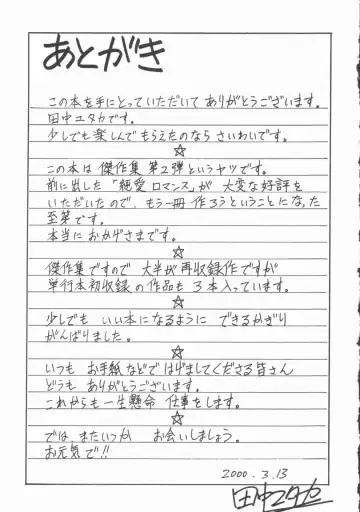 あとがき
この本を手にとっていただいて ありがとうございます。
田中ユタカです。
少しでも楽しんでもらえたのなら さいわいです。
☆
この本は 傑作集 第2弾というヤツです。
前に出した「純愛ロマンス」が 大変な好評を
いただいたので、もう一冊 作ろうということになった
至第です。
本当に おかげさまです。
☆
傑作集ですので 大半が再収録作ですが
単行本初収録の作品も 3本入っています。
☆
少しでも いい本になるように できるかぎり
がんばりました。
☆
いつも お手紙などで はげましてくださる皆さん
どうも ありがとうございます。
これからも一生懸命 仕事をします。
☆
では、またいつか お会いしましょう。
お元気で!!
2000.3.13
田中ユタカ